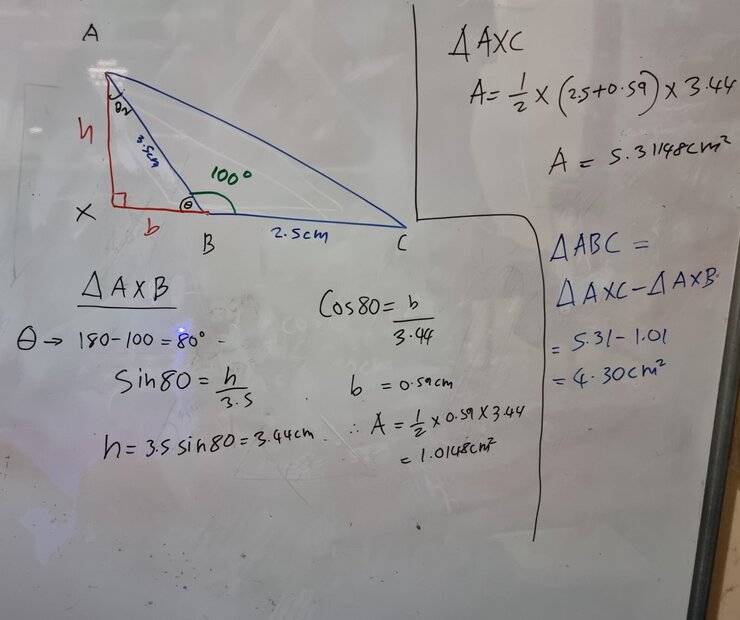 A
θ₂
h
3.5cm
100°
X
θ
b
B
2.5cm
C
Δ AXB
θ → 180-100 = 80°
Sin80 = h/3.5
h = 3.5 sin80 = 3.44cm
Cos80 = b/3.44
b = 0.59cm
∴ A = 1/2 × 0.59 × 3.44
= 1.0148cm²
Δ AXC
A = 1/2 × (2.5+0.59) × 3.44
A = 5.31148cm²
Δ ABC =
Δ AXC - Δ AXB
= 5.31-1.01
= 4.30cm²